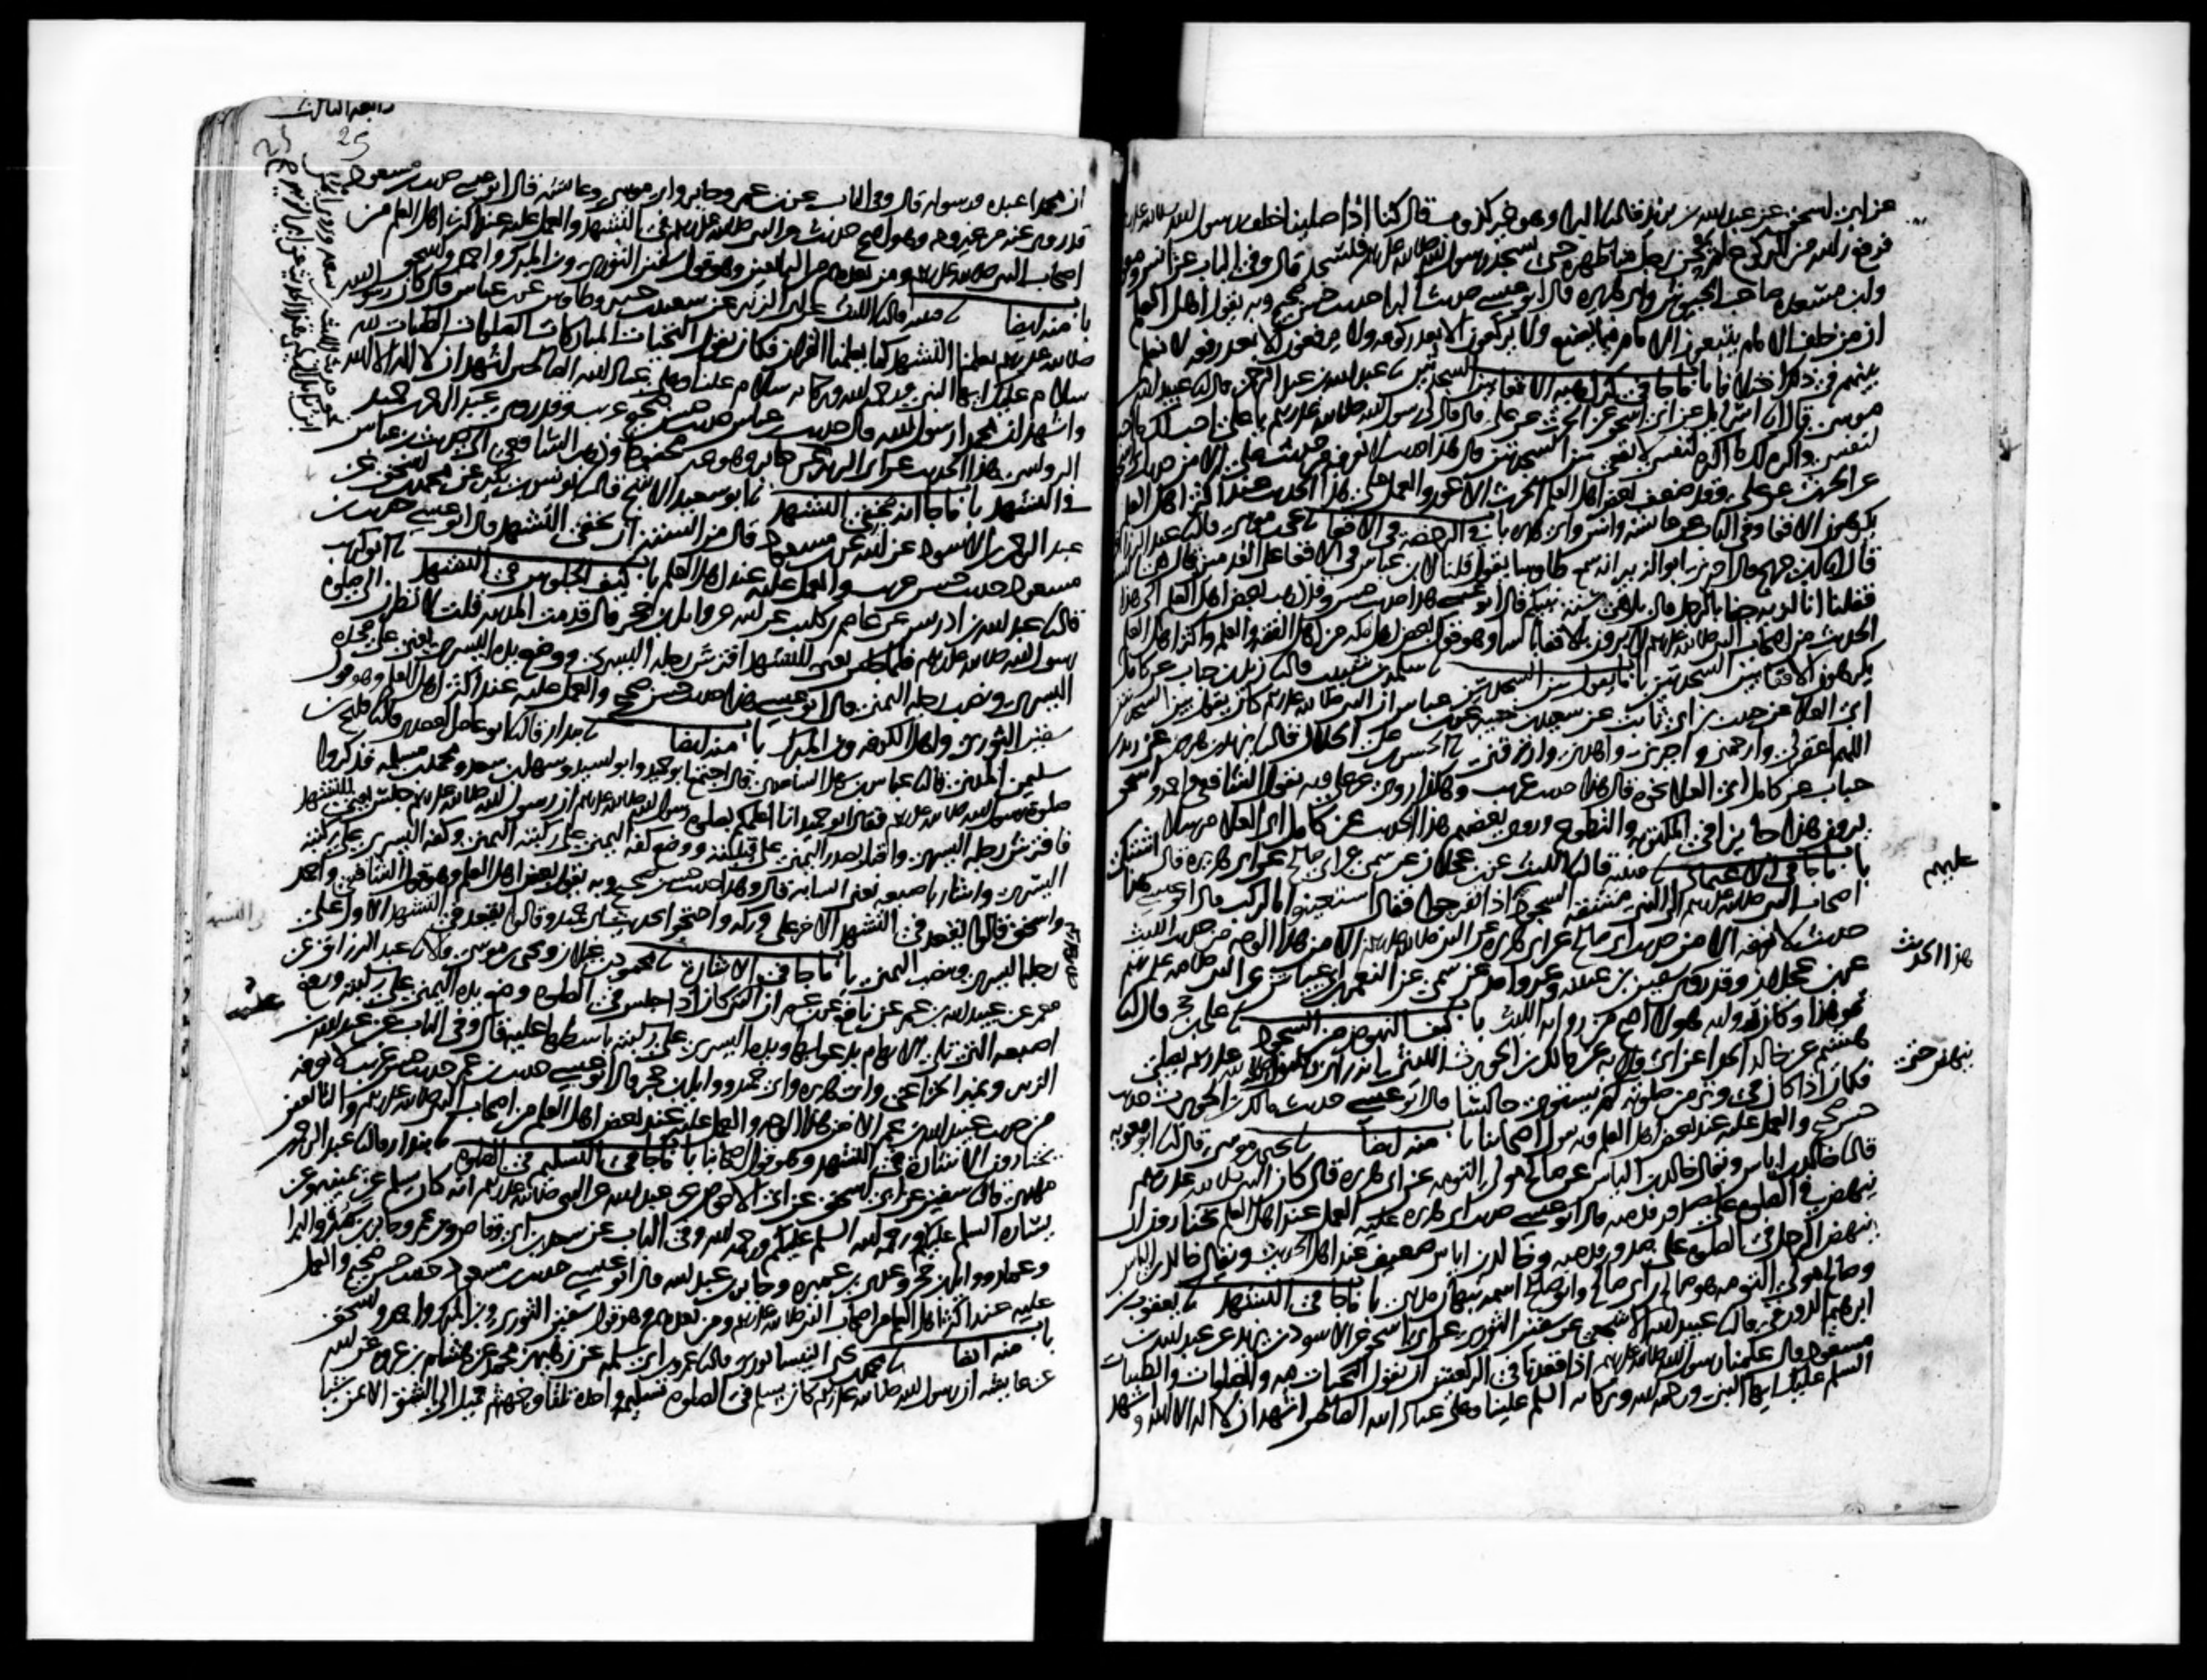 عن ابي اسحق عن عبد الله بن يزيد قال نا البرا وهو غير كذوب قال كنا اذا صلينا خلف رسول الله صلى الله عليه
فرفع راسه من الركوع لم يحن رجل منا ظهره حتى يسجد رسول الله صلى الله عليه وسلم فنسجد قال وفي الباب عن انس ومعوية
وابن مسعدة صاحب الجيوش وابي هريرة قال ابو عيسى حديث البرا حديث حسن صحيح وبه يقول اهل العلم
ان من خلف الامام يتبعون الامام فيما يصنع ولا يركعون الا بعد ركوعه ولا يرفعون الا بعد رفعه لا نعلم
بينهم في ذلك اختلافا باب ما جا في كراهية الاقعا بين السجدتين نا عبد الله بن عبد الرحمن قال نا عبيد الله
موسى قال نا اسرايل عن ابي اسحق عن الحرث عن علي قال قال لي رسول الله صلى الله عليه وسلم يا علي احب لك ما احب
لنفسي واكره لك ما اكره لنفسي لا تقع بين السجدتين قال هذا حديث لا نعرفه من حديث علي الا من حديث ابي اسحق
عن الحرث عن علي وقد ضعف بعض اهل العلم الحرث الاعور والعمل على هذا الحديث عند اكثر اهل العلم
يكرهون الاقعا وفي الباب عن عايشة وانس وابي هريرة باب في الرخصة في الاقعا نا يحيى بن موسى قال نا عبد الرزاق
قال نا ابن جريج قال اخبرني ابو الزبير انه سمع طاوسا يقول قلنا لابن عباس في الاقعا على القدمين قال هي السنة
فقلنا انا لنراه جفا بالرجل قال بل هي سنة نبيكم قال ابو عيسى هذا حديث حسن وقد ذهب بعض اهل العلم الى هذا
الحديث من اصحاب النبي صلى الله عليه وسلم لا يرون بالاقعا باسا وهو قول بعض اهل مكة من اهل الفقه والعلم واكثر اهل العلم
يكرهون الاقعا بين السجدتين باب ما يقول بين السجدتين نا سلمة بن شبيب قال نا زيد بن حباب عن كامل
ابي العلا عن حبيب بن ابي ثابت عن سعيد بن جبير عن ابن عباس ان النبي صلى الله عليه وسلم كان يقول بين السجدتين
اللهم اغفر لي وارحمني واجبرني واهدني وارزقني نا الحسن بن علي الخلال قال نا يزيد بن هرون عن زيد بن
حباب عن كامل ابي العلا نحوه قال هذا حديث غريب وهكذا روي عن علي وبه يقول الشافعي واحمد واسحق
يرون هذا جايزا في المكتوبة والتطوع وروى بعضهم هذا الحديث عن كامل ابي العلا مرسلا
باب ما جا في الاعتماد نا قتيبة قال نا الليث عن ابن عجلان عن سمي عن ابي صالح عن ابي هريرة قال اشتكى
اصحاب النبي صلى الله عليه وسلم الى النبي مشقة السجود اذا تفرجوا فقال استعينوا بالركب قال ابو عيسى هذا
حديث لا نعرفه الا من حديث ابي صالح عن ابي هريرة عن النبي صلى الله عليه وسلم الا من هذا الوجه من حديث الليث
عن ابن عجلان وقد روى سفين بن عيينة وغير واحد عن سمي عن النعمان بن ابي عياش عن النبي صلى الله عليه وسلم
نحو هذا وكان رواية هولا اصح من رواية الليث باب كيف النهوض من السجود نا علي بن حجر قال نا
هشيم عن خالد الحذا عن ابي قلابة عن مالك بن الحويرث الليثي انه راى رسول الله صلى الله عليه وسلم يصلي
فكان اذا كان في وتر من صلوته لم يستوي جالسا قال ابو عيسى حديث مالك بن الحويرث حديث
حسن صحيح والعمل عليه عند بعض اهل العلم وبه يقول اصحابنا باب منه ايضا نا يحيى بن موسى قال نا ابو معوية
قال نا خالد بن اياس ويقال خالد بن الياس عن صالح مولى التومة عن ابي هريرة قال كان النبي صلى الله عليه وسلم
ينهض في الصلوة على صدور قدميه قال ابو عيسى حديث ابي هريرة عليه العمل عند اهل العلم يختارون ان
ينهض الرجل في الصلوة على صدور قدميه وخالد بن اياس ضعيف عند اهل الحديث ويقال خالد بن الياس
وصالح مولى التومة هو صالح بن ابي صالح وابو صالح اسمه نبهان مدني باب ما جا في التشهد نا يعقوب بن
ابرهيم الدورقي قال نا عبيد الله الاشجعي عن سفين الثوري عن ابي اسحق عن الاسود بن يزيد عن عبد الله بن
مسعود قال علمنا رسول الله صلى الله عليه وسلم اذا قعدنا في الركعتين ان نقول التحيات لله والصلوات والطيبات
السلام عليك ايها النبي ورحمة الله وبركاته السلم علينا وعلى عباد الله الصالحين اشهد ان لا اله الا الله واشهد
عليهم
هذا الحديث
ينهض حتى
25
ان محمدا عبده ورسوله قال وفي الباب عن ابن عمر وجابر وابي موسى وعايشة قال ابو عيسى حديث ابن مسعود
قد روي عنه من غير وجه وهو اصح حديث عن النبي صلى الله عليه وسلم في التشهد والعمل عليه عند اكثر اهل العلم من
اصحاب النبي صلى الله عليه وسلم ومن بعدهم من التابعين وهو قول سفين الثوري وابن المبرك واحمد واسحق
باب منه ايضا نا قتيبة قال نا الليث عن ابي الزبير عن سعيد بن جبير وطاوس عن ابن عباس قال كان رسول الله
صلى الله عليه وسلم يعلمنا التشهد كما يعلمنا القران فكان يقول التحيات المباركات الصلوات الطيبات لله
سلام عليك ايها النبي ورحمة الله وبركاته سلام علينا وعلى عباد الله الصالحين اشهد ان لا اله الا الله
واشهد ان محمدا رسول الله قال حديث ابن عباس حديث حسن صحيح غريب وقد روى عبد الرحمن بن حميد
في التشهد باب ما جا انه يخفي التشهد نا ابو سعيد الاشج قال نا يونس بن بكير عن محمد بن اسحق عن
عبد الرحمن بن الاسود عن ابيه عن ابن مسعود قال من السنة ان يخفي التشهد قال ابو عيسى حديث ابن
مسعود حديث حسن غريب والعمل عليه عند اهل العلم باب كيف الجلوس في التشهد نا ابو كريب
قال نا عبد الله بن ادريس عن عاصم بن كليب عن ابيه عن وايل بن حجر قال قدمت المدينة قلت لانظرن الى صلوة
رسول الله صلى الله عليه وسلم فلما جلس يعني للتشهد افترش رجله اليسرى ووضع يده اليسرى يعني على فخذه
اليسرى ونصب رجله اليمنى قال ابو عيسى هذا حديث حسن صحيح والعمل عليه عند اكثر اهل العلم وهو قول
سفين الثوري واهل الكوفة وابن المبرك باب منه ايضا نا بندار قال نا ابو عامر العقدي قال نا فليح بن
سليمن المدني قال نا عباس بن سهل الساعدي قال اجتمع ابو حميد وابو اسيد وسهل بن سعد ومحمد بن مسلمة فذكروا
صلوة رسول الله صلى الله عليه وسلم فقال ابو حميد انا اعلمكم بصلوة رسول الله صلى الله عليه وسلم ان رسول الله صلى الله عليه وسلم جلس يعني للتشهد
فافترش رجله اليسرى واقبل بصدر اليمنى على قبلته ووضع كفه اليمنى على ركبته اليمنى وكفه اليسرى على ركبته
اليسرى واشار باصبعه يعني السبابة قال وهذا حديث حسن صحيح وبه يقول بعض اهل العلم وهو قول الشافعي واحمد
واسحق قالوا يقعد في التشهد الاخر على وركه واحتجوا بحديث ابي حميد وقالوا يقعد في التشهد الاول على
رجله اليسرى وينصب اليمنى باب ما جا في الاشارة نا محمود بن غيلان ويحيى بن موسى قالا نا عبد الرزاق عن
معمر عن عبيد الله بن عمر عن نافع عن ابن عمر ان النبي كان اذا جلس في الصلوة وضع يده اليمنى على ركبته ورفع
اصبعه التي تلي الابهام يدعو بها ويده اليسرى على ركبته باسطها عليه قال وفي الباب عن عبد الله بن
الزبير ونمير الخزاعي وابي هريرة وابي حميد ووايل بن حجر قال ابو عيسى حديث ابن عمر حديث حسن غريب لا نعرفه
من حديث عبيد الله بن عمر الا من هذا الوجه والعمل عليه عند بعض اهل العلم من اصحاب النبي صلى الله عليه وسلم والتابعين
يختارون الاشارة في التشهد وهو قول اصحابنا باب ما جا في التسليم في الصلوة نا بندار قال نا عبد الرحمن بن
مهدي قال نا سفين عن ابي اسحق عن ابي الاحوص عن عبد الله عن النبي صلى الله عليه وسلم انه كان يسلم عن يمينه وعن
يساره السلم عليكم ورحمة الله السلم عليكم ورحمة الله وفي الباب عن سعد بن ابي وقاص وابن عمر وجابر بن سمرة والبرا
وعمار ووايل بن حجر وعدي بن عميرة وجابر بن عبد الله قال ابو عيسى حديث ابن مسعود حديث حسن صحيح والعمل
عليه عند اكثر اهل العلم من اصحاب النبي صلى الله عليه وسلم ومن بعدهم وهو قول سفين الثوري وابن المبرك واحمد واسحق
باب منه ايضا نا محمد بن يحيى النيسابوري قال نا عمرو بن ابي سلمة عن زهير بن محمد عن هشام بن عروة عن ابيه
عن عايشة ان رسول الله صلى الله عليه وسلم كان يسلم في الصلوة تسليمة واحدة تلقا وجهه ثم يميل الى الشق الايمن شيا